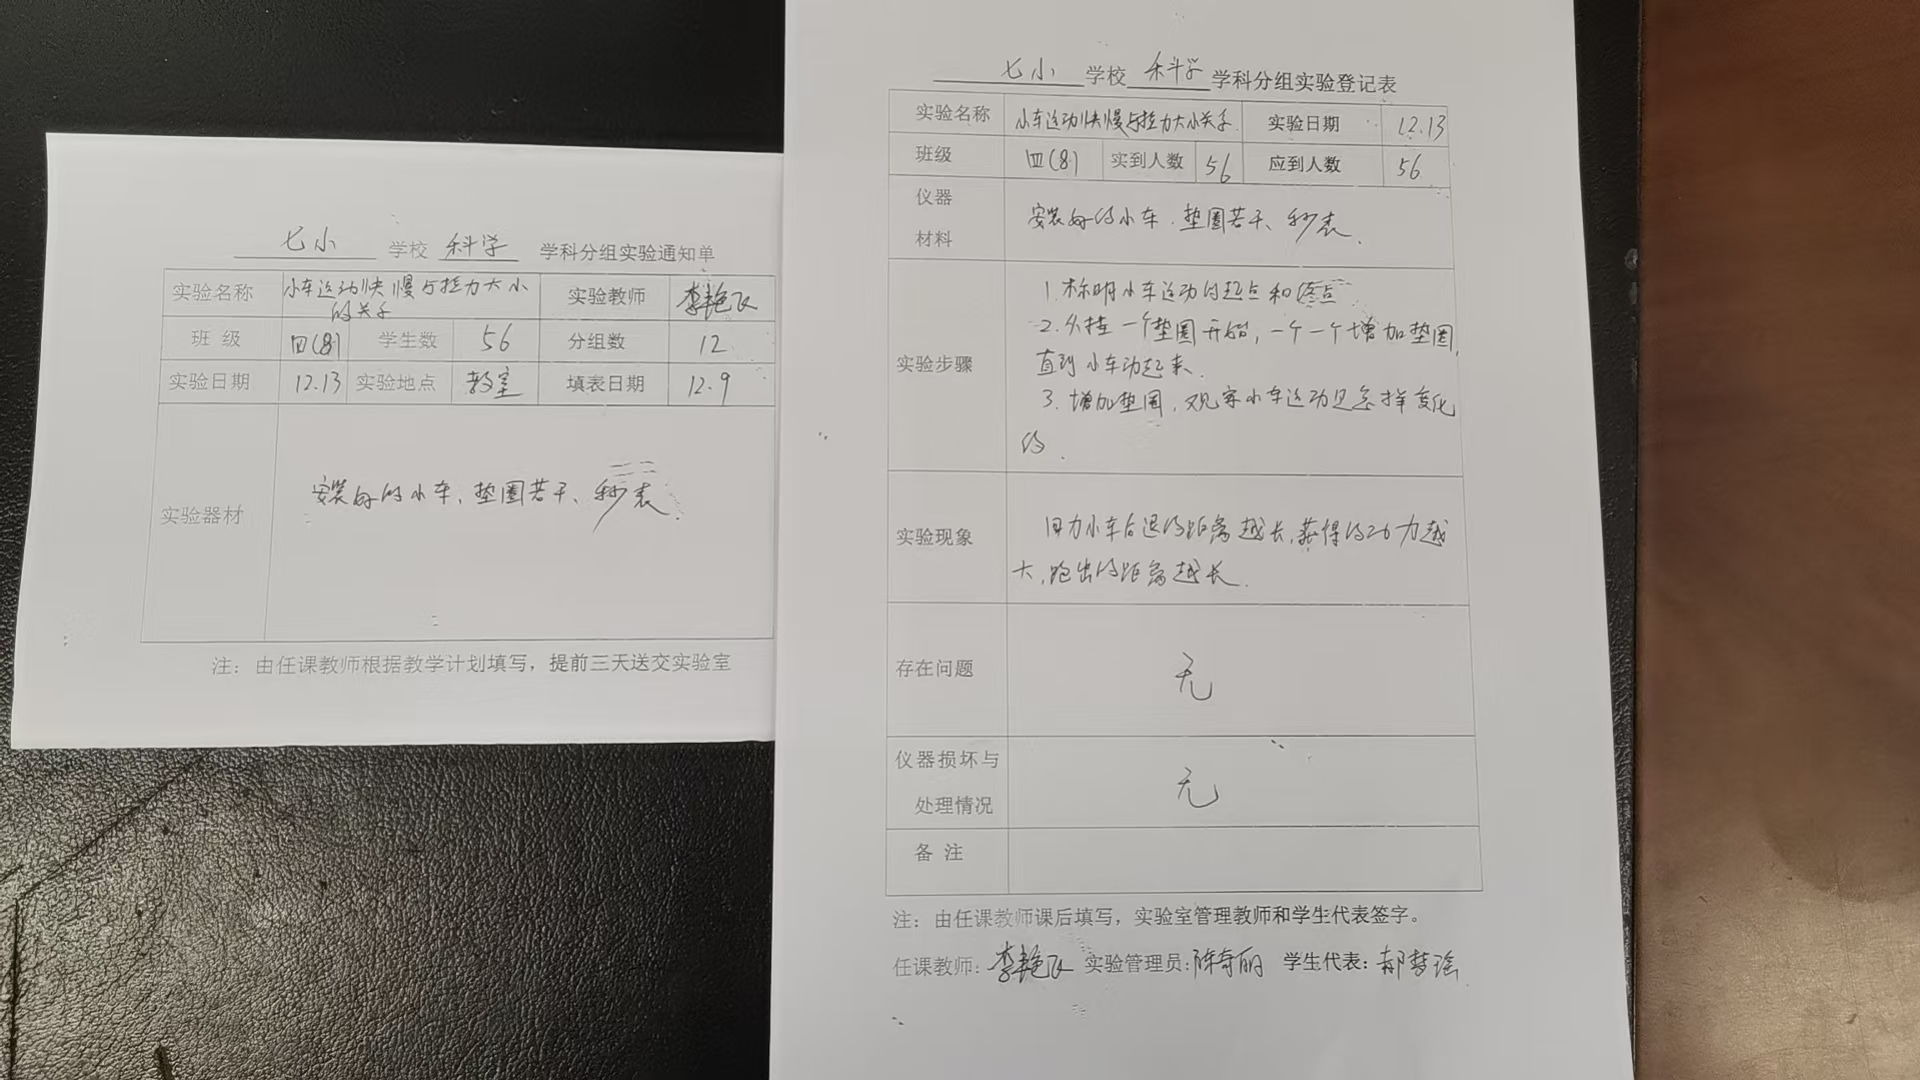 七小 学校 科学 学科分组实验通知单
实验名称 小车运动快慢与拉力大小的关系 实验教师 李艳飞
班 级 四(8) 学生数 56 分组数 12
实验日期 12.13 实验地点 教室 填表日期 12.9
实验器材 安装好的小车、垫圈若干、秒表.
注：由任课教师根据教学计划填写，提前三天送交实验室
七小 学校 科学 学科分组实验登记表
实验名称 小车运动快慢与拉力大小关系. 实验日期 12.13
班级 四(8) 实到人数 56 应到人数 56
仪器材料 安装好的小车.垫圈若干、秒表.
实验步骤
1.标明小车运动的起点和终点
2.从挂一个垫圈开始,一个一个增加垫圈,
直到小车动起来.
3.增加垫圈,观察小车运动是怎样变化
的.
实验现象 回力小车后退的距离越长,获得的动力越
大,跑出的距离越长.
存在问题 无
仪器损坏与处理情况 无
备 注
注：由任课教师课后填写，实验室管理教师和学生代表签字。
任课教师: 李艳飞 实验管理员: 奇丽 学生代表: 郝梦瑶